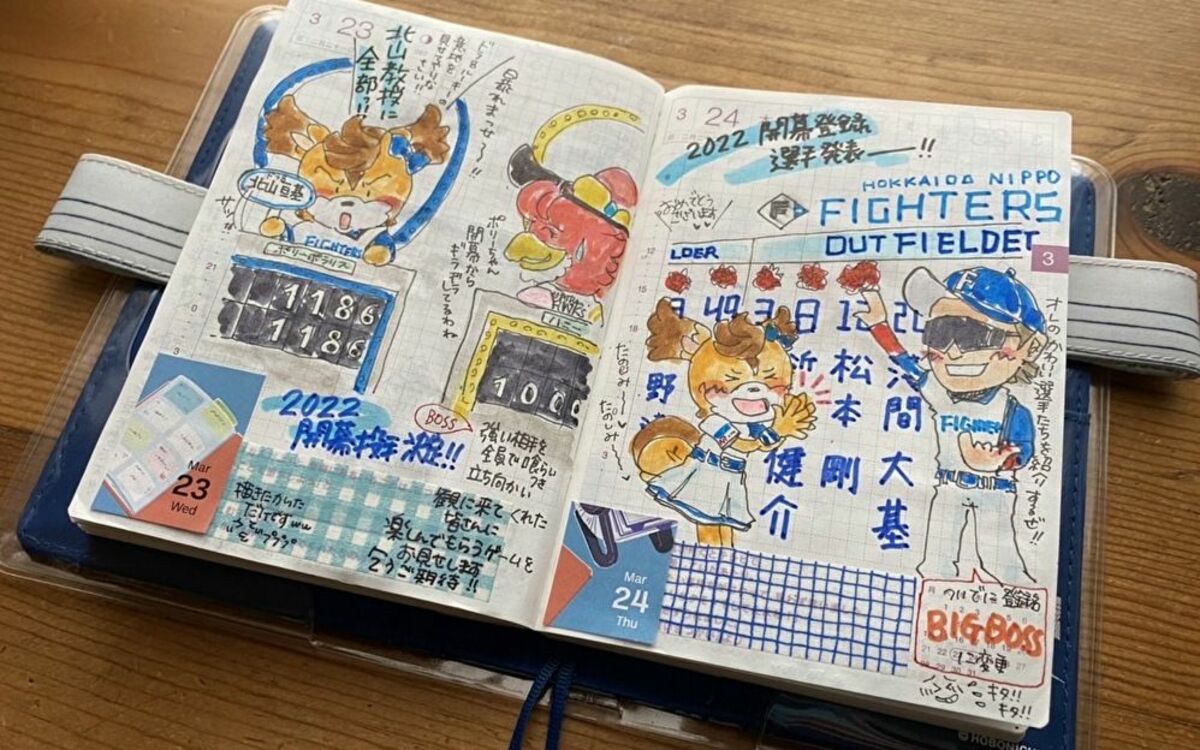 3 23
北山教授に
全部!?
ドラ8ルーキーの
意地を
見せてやりな
さい!!
暴れまっせ〜!!
北山亘基
FIGHTERS
ポリーポラリス
1186
1186
ポリーちゃん
開幕から
ギラギラ
してるわね
HAWKS
ハニー
100
2022
開幕投手決定!!
BOSS
強い相手を
全員で喰らいつき
立ち向かい
観に来てくれた
皆さんに
楽しんでもらうゲームを
お見せします
乞うご期待!!
描きたかった
だけですww
Mar
23
Wed
3 24
2022 開幕登録
選手発表ー!!
おめでとう
ございます
HOKKAIDO NIPPO
FIGHTERS
OUTFIELDER
LDER
9 49 3 8 12
野
近
健
介
松
本
剛
浅
間
大
基
たのしみ〜
たのしみ〜
FIGHTERS
オレのかわいい選手たちを紹介するぜ!!
3
Mar
24
Thu
ついでに登録名
BIGBOSS
に変更
キタ!!
キタ!!